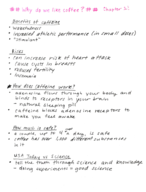 Why do we like coffee? Chapter 3!
Benefits of caffeine
* "dependent"
* increased athletic performance (in small doses)
* "stimulant"
Risks
* can increase risk of heart attack
* cause cyst in breasts
* reduce fertility
* insomnia
How does caffeine work?
* adenosine float through your body, and binds to receptors in your brain
* natural sleeping pill
* caffeine blocks adenosine receptors to make you feel awake
How much is safe?
a day, is safe
* coffee has over 1000 different substances in it
What Today is Science
* the truth through science and knowledge
* doing experiments = good science